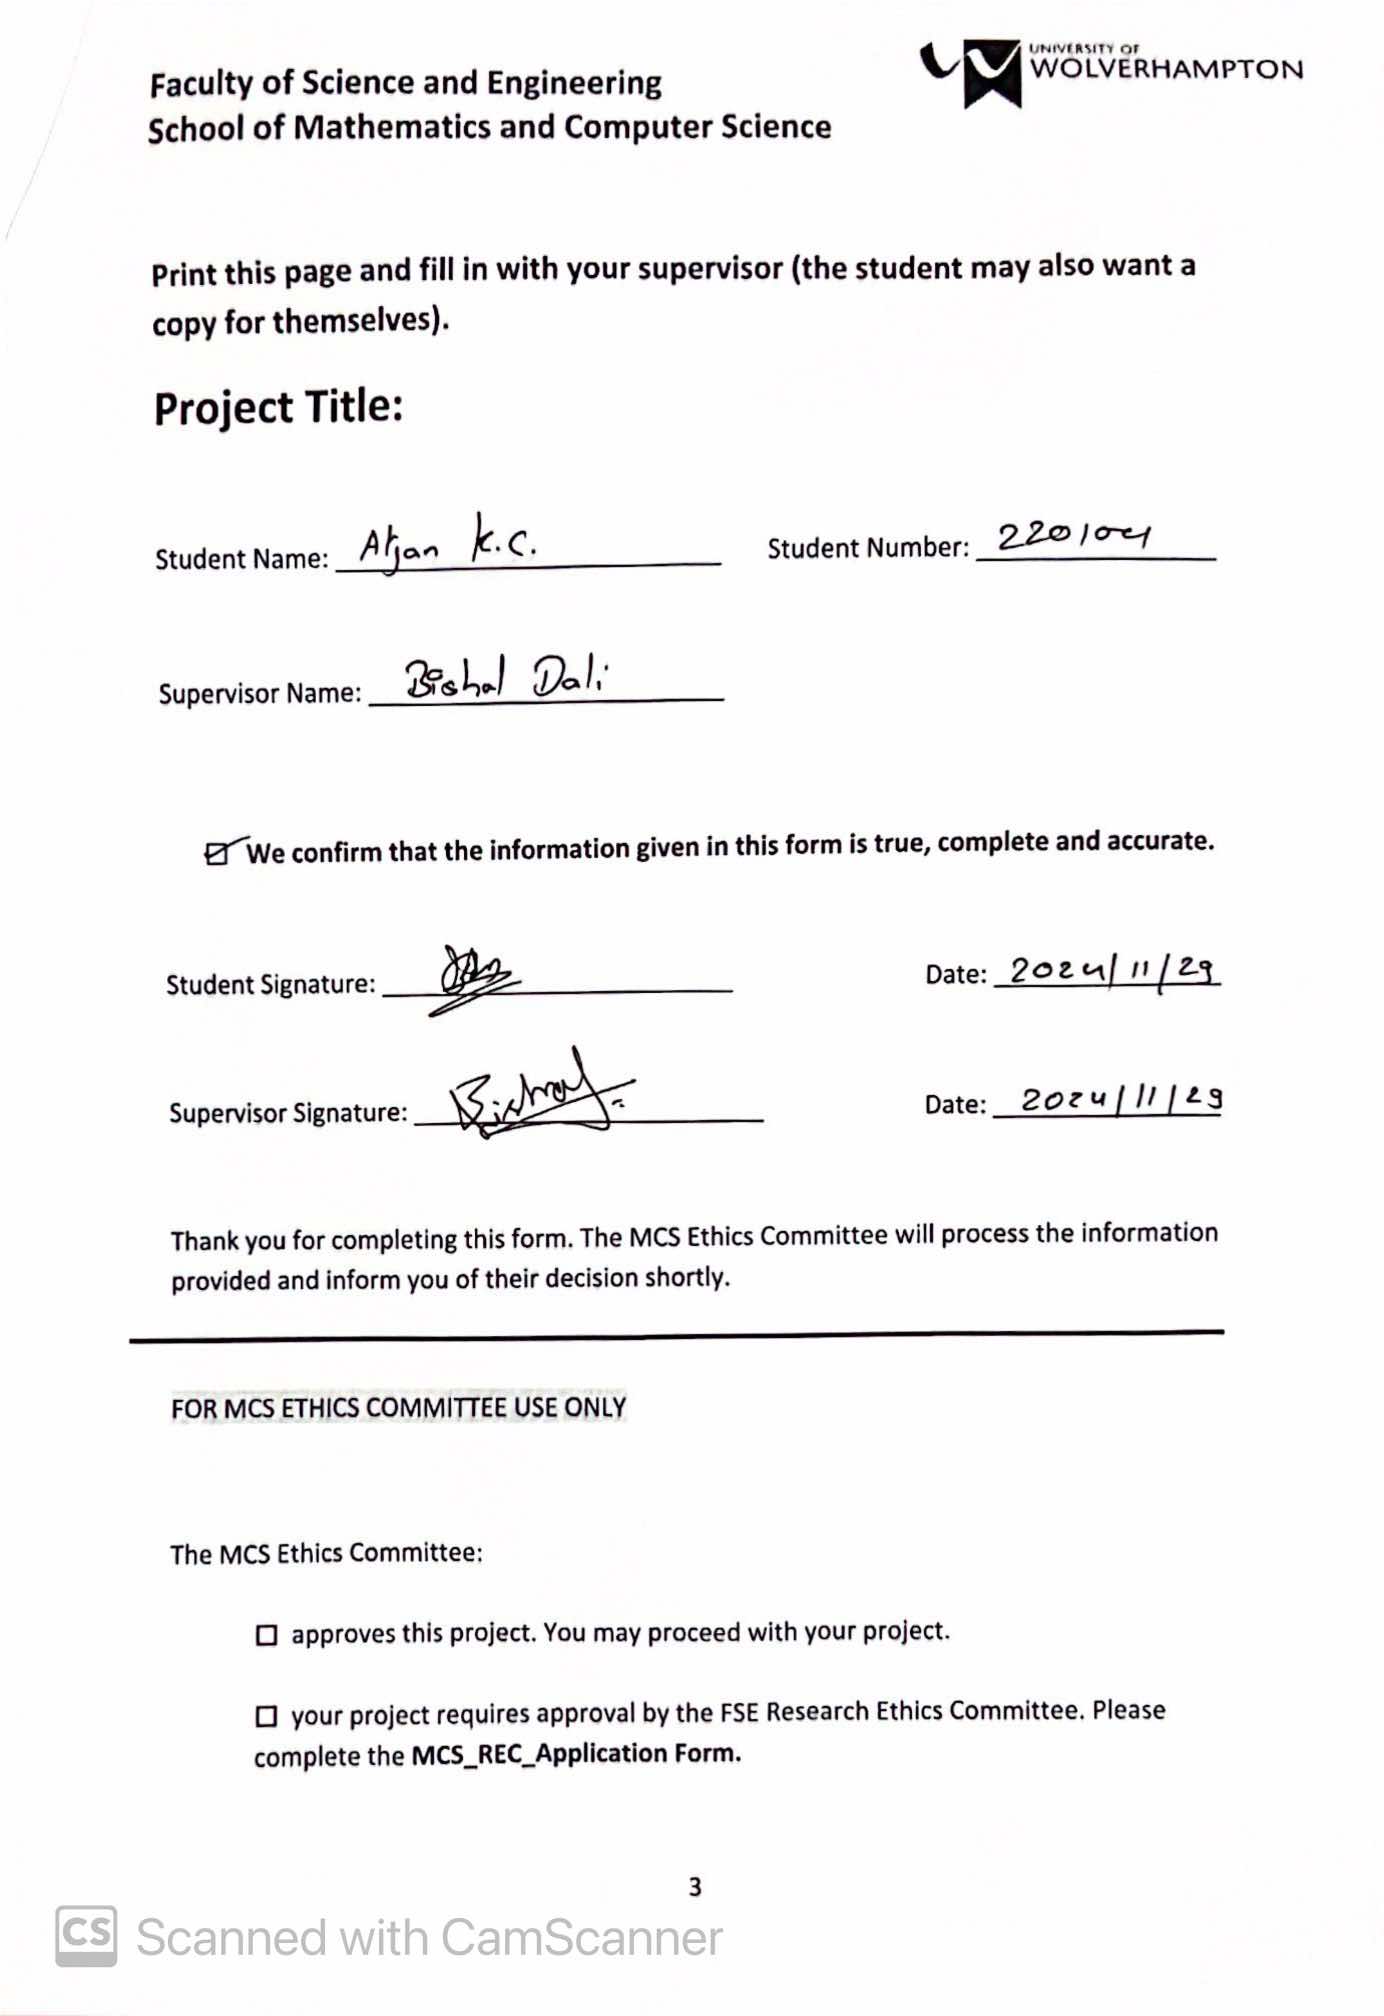 UNIVERSITY OF
WOLVERHAMPTON
Faculty of Science and Engineering
School of Mathematics and Computer Science
Print this page and fill in with your supervisor (the student may also want a
copy for themselves).
Project Title:
Student Name: Arjan K.C. Student Number: 220104
Supervisor Name: Bishal Dali
☑ We confirm that the information given in this form is true, complete and accurate.
Student Signature: Date: 2024/11/29
Supervisor Signature: Bishal Date: 2024/11/29
Thank you for completing this form. The MCS Ethics Committee will process the information
provided and inform you of their decision shortly.
FOR MCS ETHICS COMMITTEE USE ONLY
The MCS Ethics Committee:
☐ approves this project. You may proceed with your project.
☐ your project requires approval by the FSE Research Ethics Committee. Please
complete the MCS_REC_Application Form.
3
CS Scanned with CamScanner